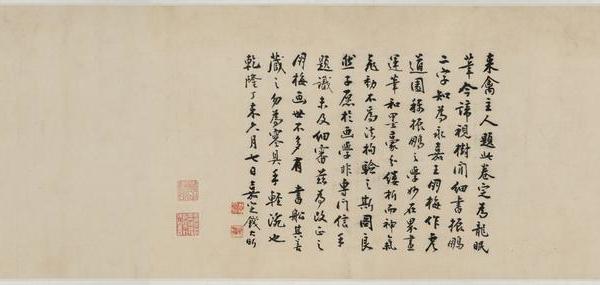 来禽主人題此卷定為龍眠
筆今諦視樹間細書振鵬
二字知為永嘉王朋梅作虞
道園稱振鵬之學妙在界畫
運筆和墨毫分縷析而神氣
飛動不為法拘驗之斯圖良
然子愿於画學非專門信手
題識未及細審茲為改正之
朋梅画世不多有書船其善
藏之勿為寒具手輕浼也
乾隆丁未六月七日嘉定錢大昕